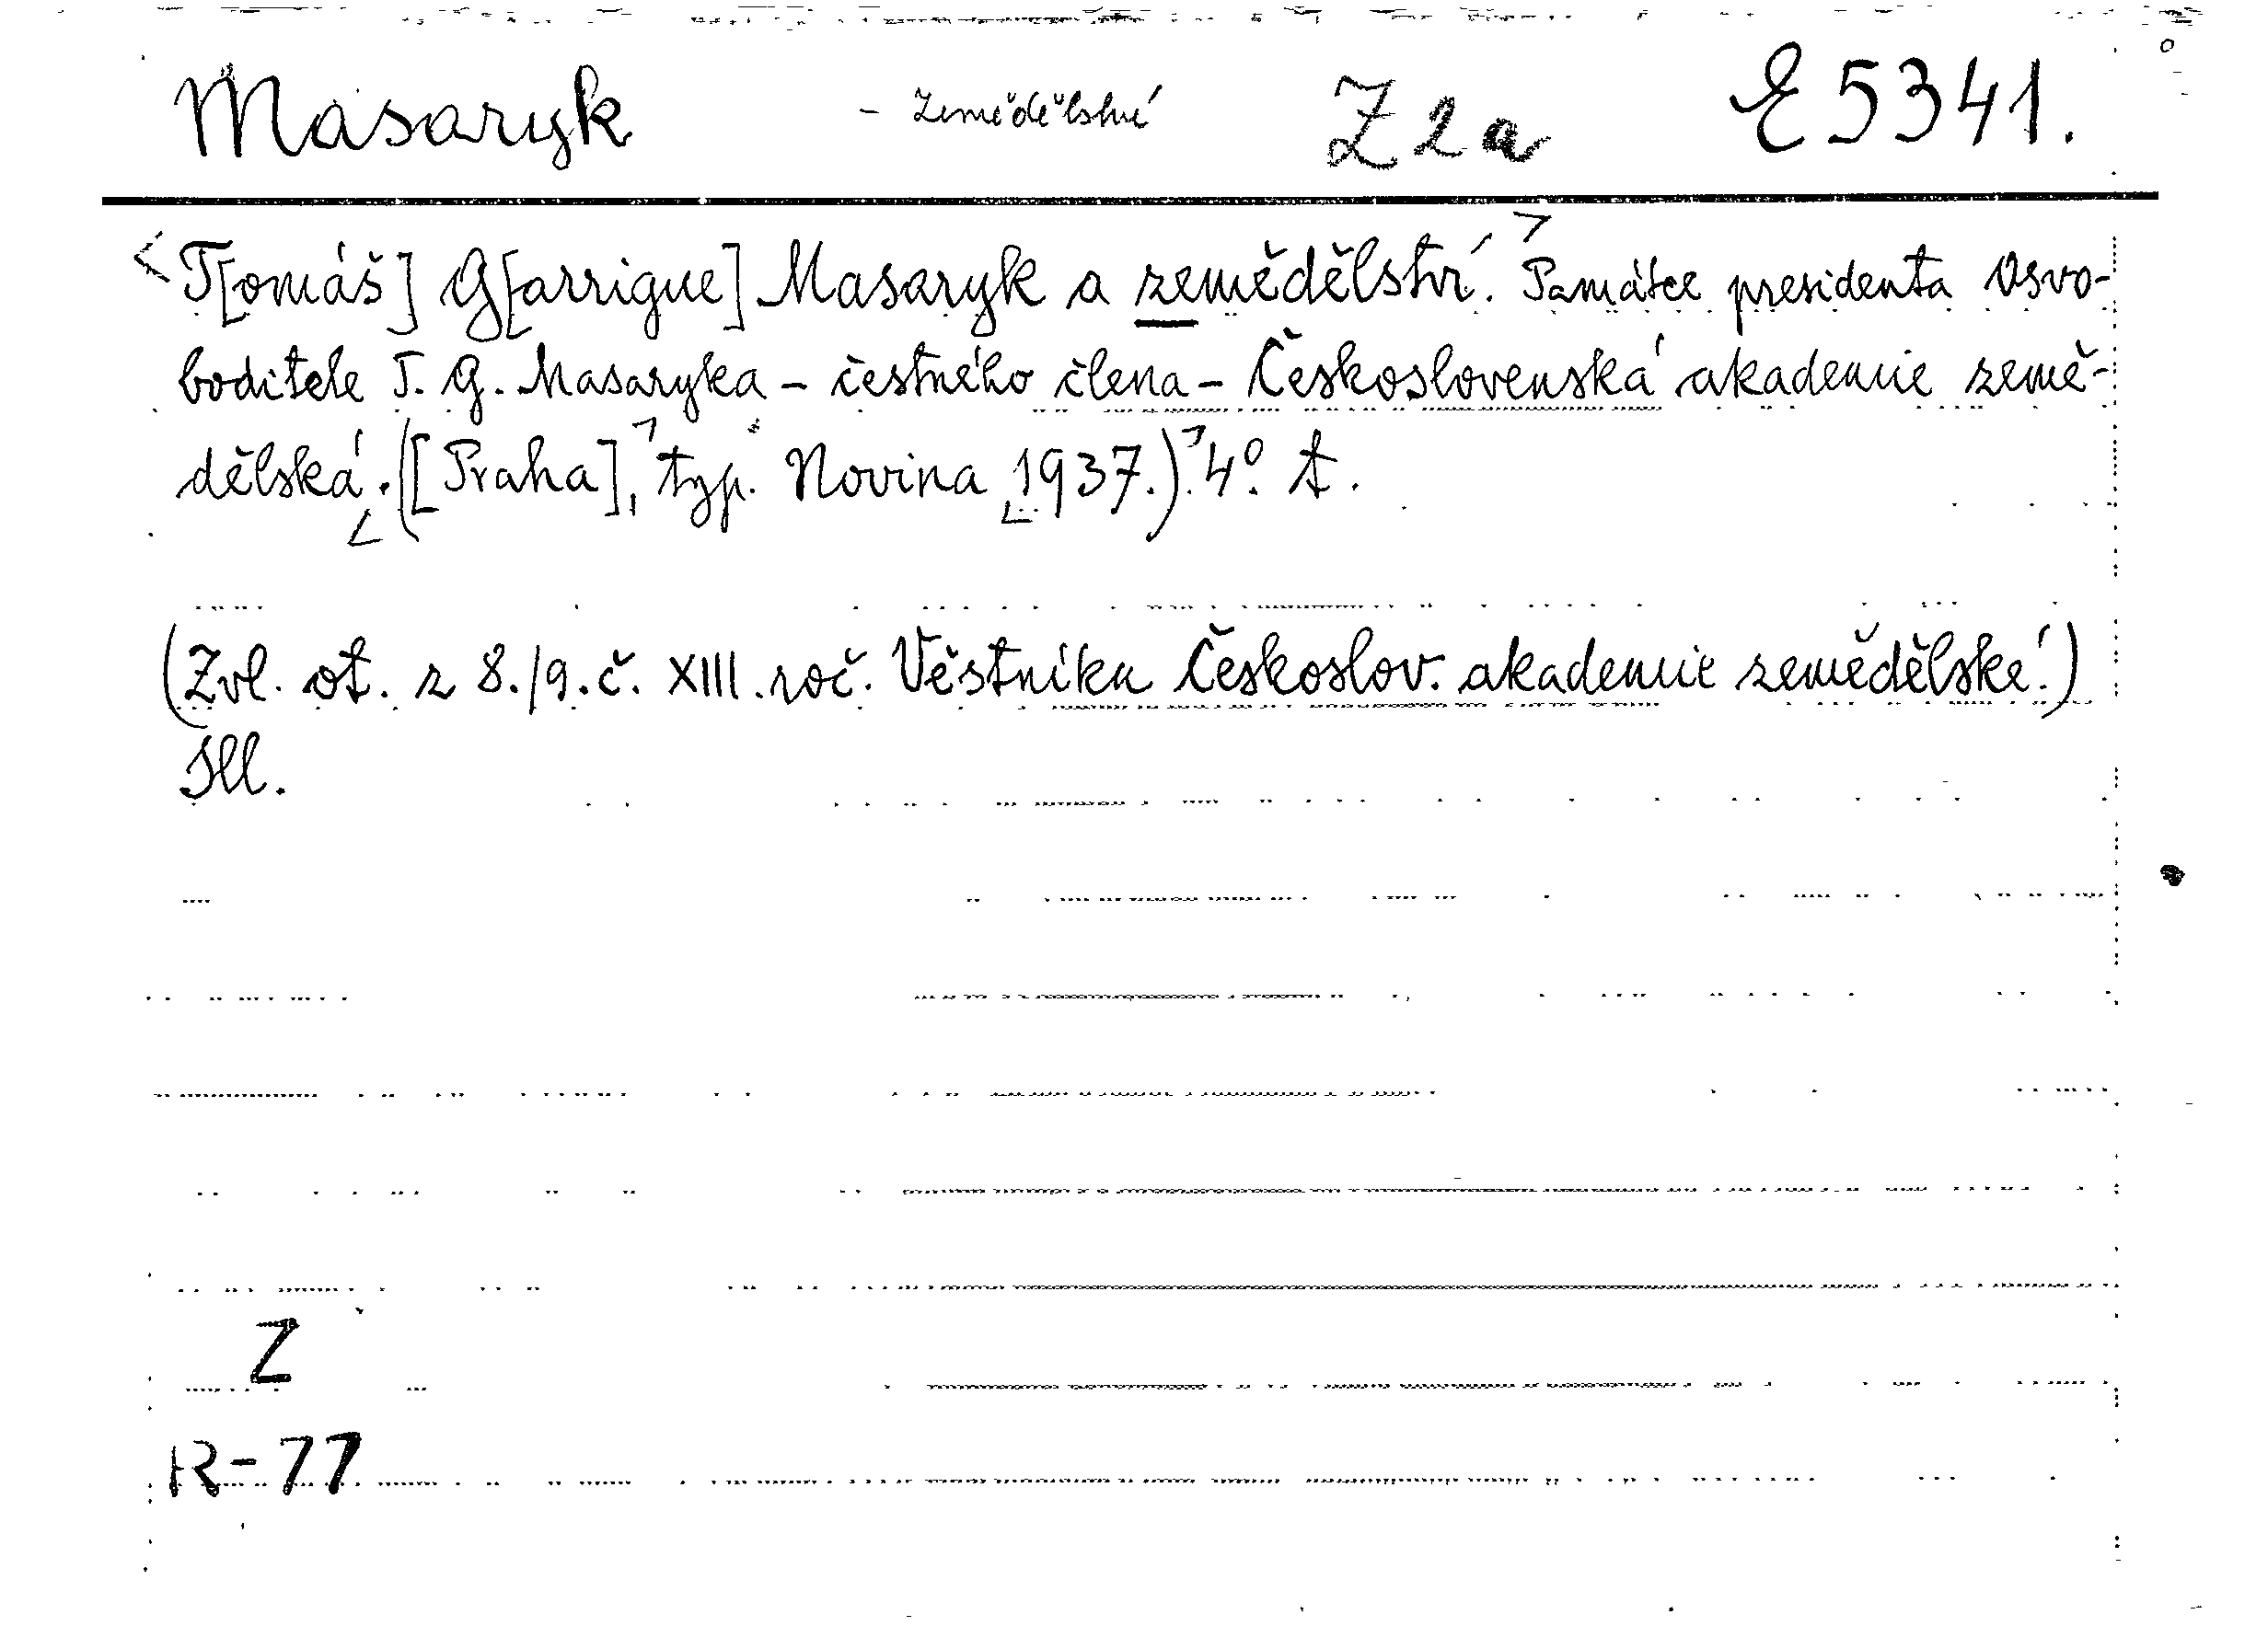 Masaryk - Zemědělství Z 2a E 5341.
T[omáš] G[arrigue] Masaryk a zemědělství. Památce presidenta Osvo-
boditele T. G. Masaryka - čestného člena - Československá akademie země-
dělská. ([Praha], typ. Novina 1937.) 4°. A.
(Zvl. ot. z 8./9. č. XIII. roč. Věstníku Českoslov. akademie zemědělské.)
Ill.
Z
R-77